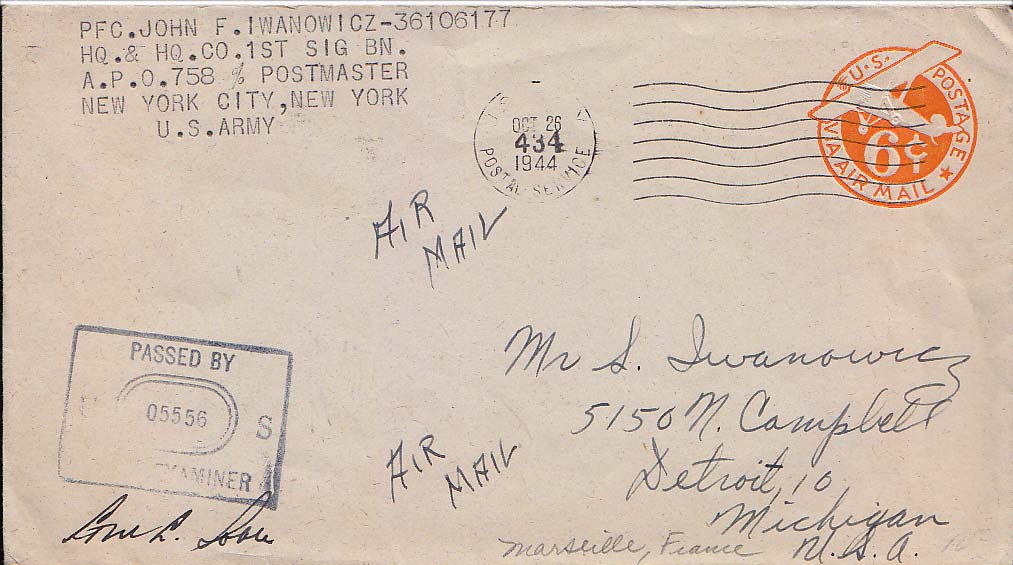 PFC.JOHN F.IWANOWICZ-36106177
HQ.& HQ.CO.1ST SIG BN.
A.P.O.758 % POSTMASTER
NEW YORK CITY,NEW YORK
U.S.ARMY
OCT 26
434
1944
POSTAL SERVICE
U.S. POSTAGE
6¢
VIA AIR MAIL
AIR
MAIL
PASSED BY
05556
S
EXAMINER
Mr S. Iwanowicz
5150 N. Campbell
Detroit, 10,
Michigan
U.S.A.
AIR
MAIL
Marseille, France